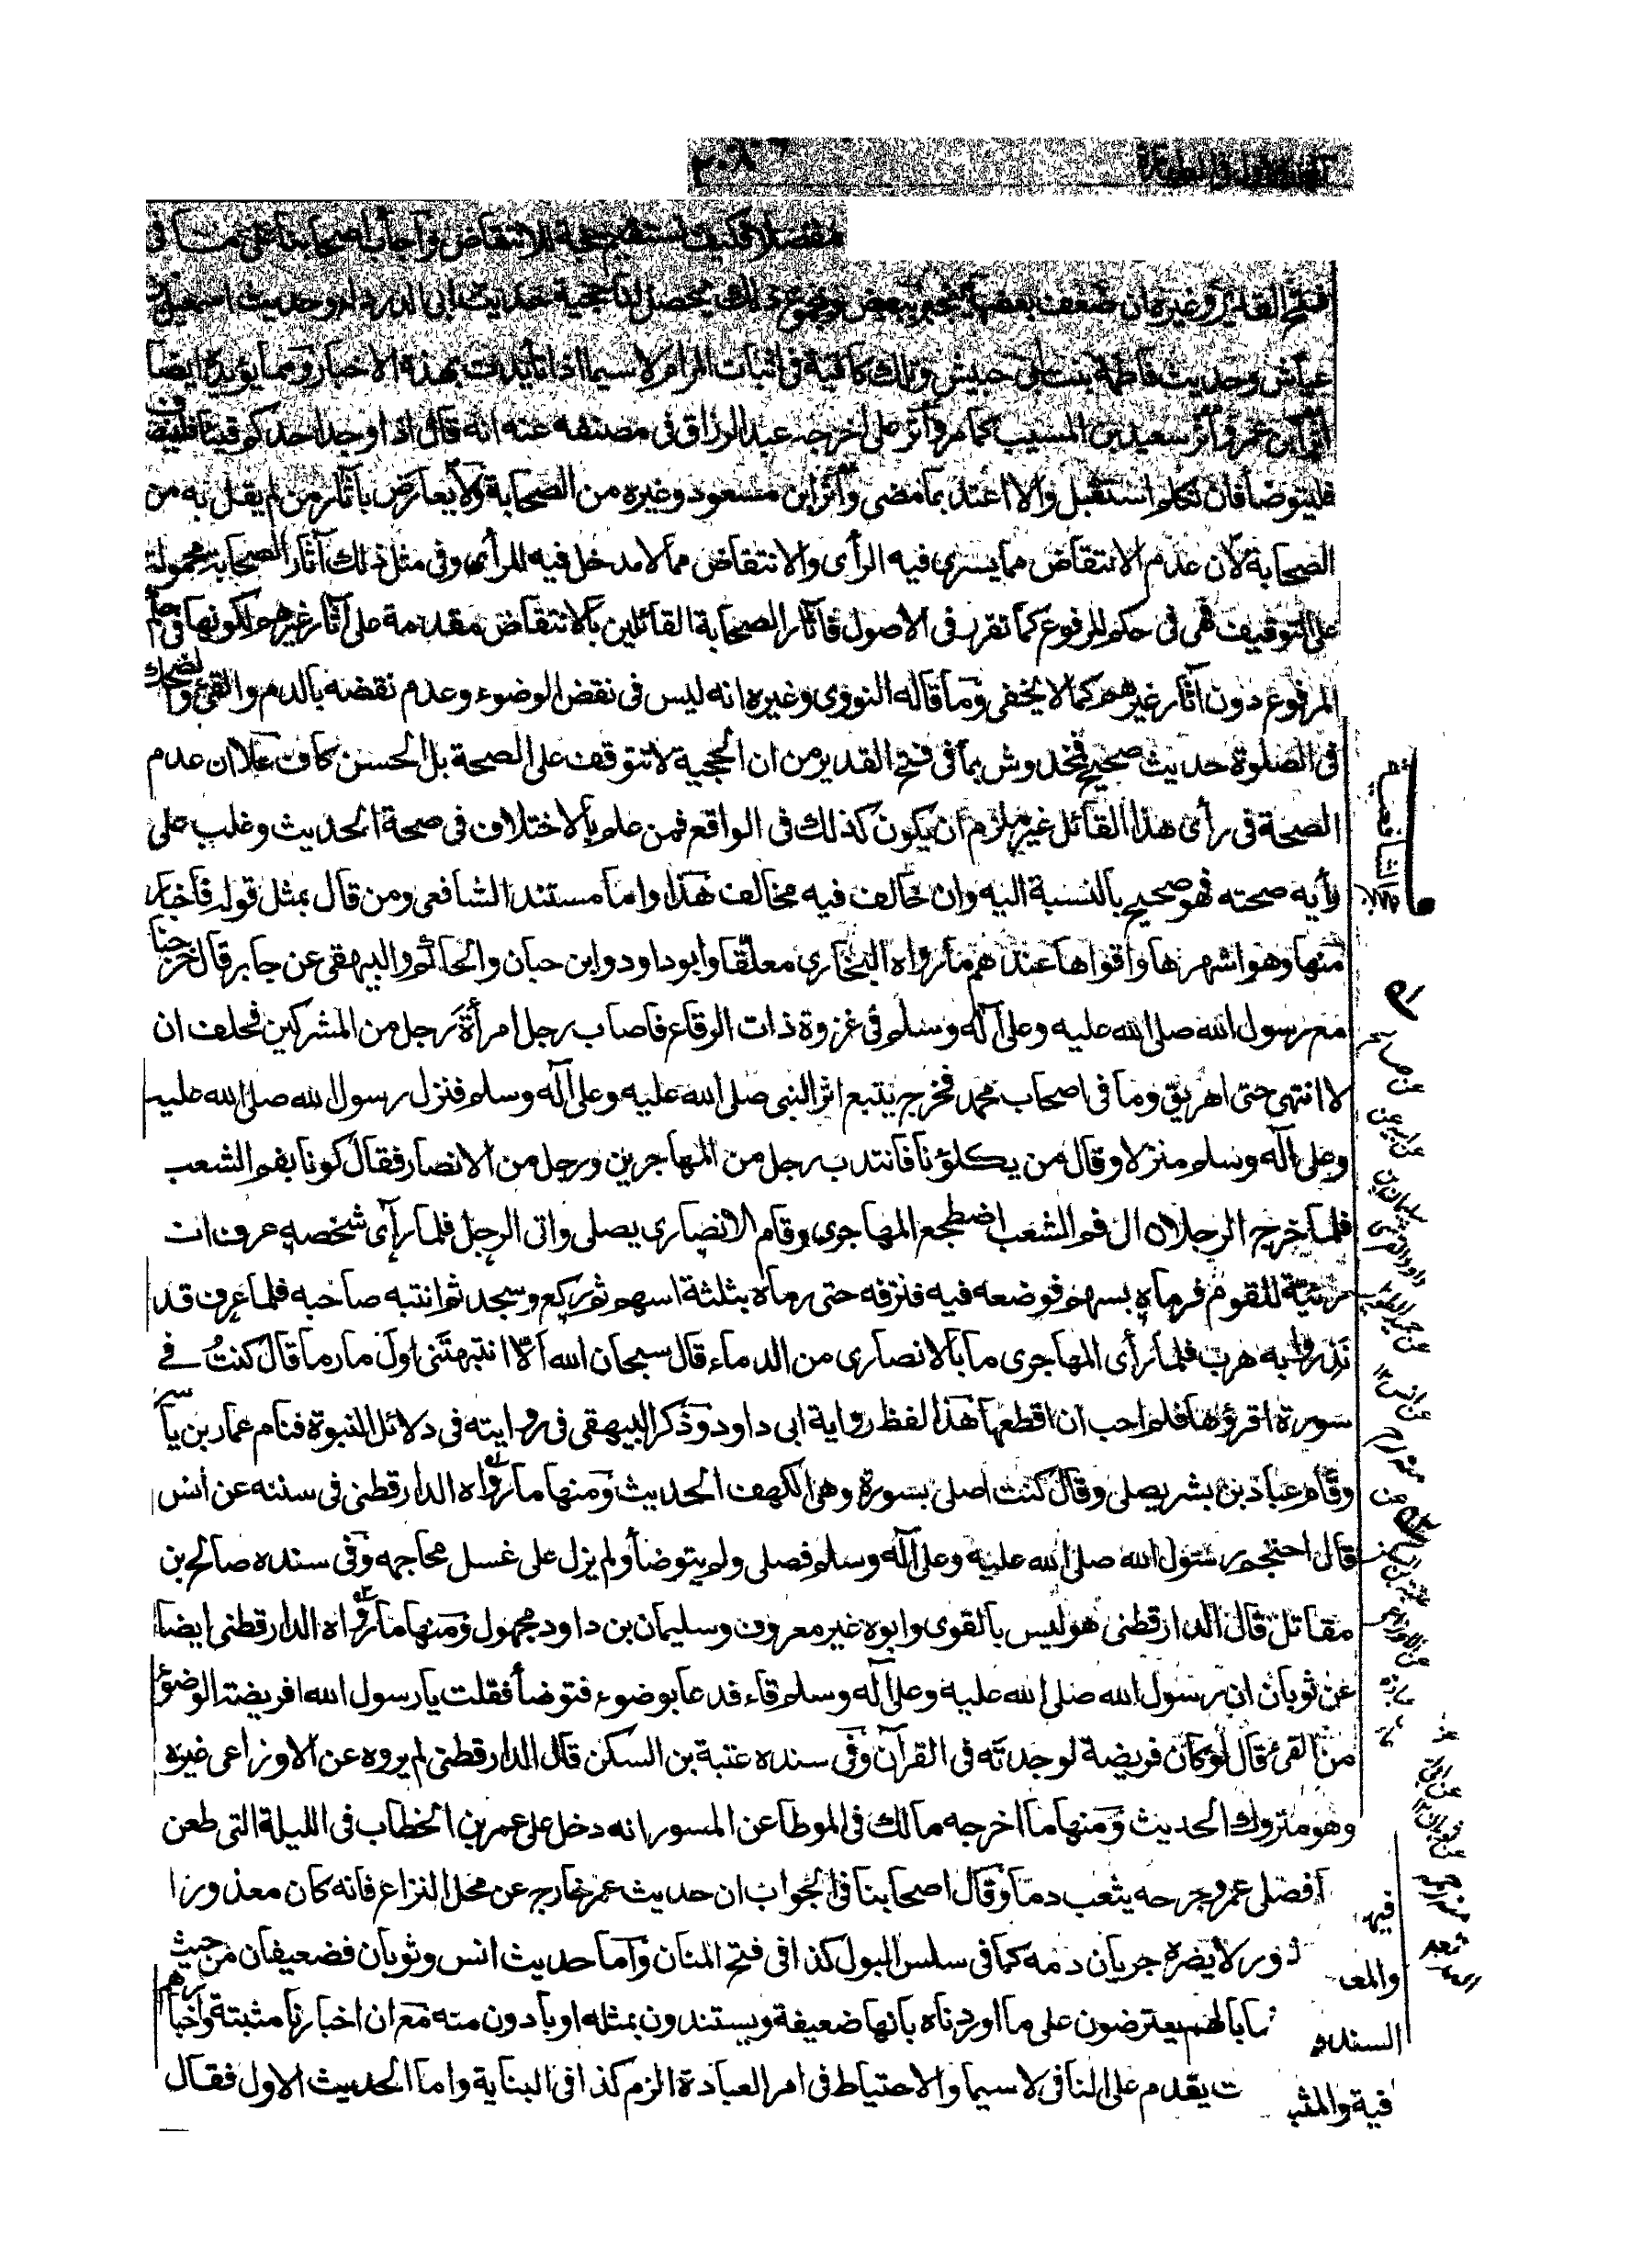 ٢٠٨
مفصلا فكيف تستقيم حجة للانتقاض وأجاب أصحابنا على ما في
فتح القدير وغيره ان ضعف بعضها ينجبر ببعض وبمجموع ذلك يحصل لنا حجية حديث ابى الدرداء وحديث اسمعيل بن
عياش وحديث فاطمة بنت ابى حبيش وتلك كافية فى اثبات المرام لا سيما اذا تأيدت بهذه الاخبار ومما يؤيده ايضا
أثر ابن عمر وأثر سعيد بن المسيب كما مر وأثر على اخرجه عبد الرزاق فى مصنفه عنه انه قال اذا وجد احدكم قيئا فلينصرف
فليتوضأ فان تكلم استقبل والا اعتد بما مضى وأثر ابن مسعود وغيره من الصحابة ولا يعارض بأثار من لم يقل به من
الصحابة لان عدم الانتقاض مما يسرى فيه الرأى والانتقاض مما لا مدخل فيه للرأى وفى مثل ذلك آثار الصحابة محمولة
على التوقيف فهى فى حكم المرفوع كما تقرر فى الاصول فآثار الصحابة القائلين بالانتقاض مقدمة على آثار غيرهم لكونها فى حكم
المرفوع دون آثار غيرهم كما لا يخفى وما قاله النووى وغيره انه ليس فى نقض الوضوء وعدم نقضه بالدم والقئ والضحك
فى الصلوة حديث صحيح فمخدوش بما فى فتح القدير من ان الحجية لا تتوقف على الصحة بل الحسن كاف علا ان عدم
الصحة فى رأى هذا القائل غير ملزم ان يكون كذلك فى الواقع فمن علم بالاختلاف فى صحة الحديث وغلب على
رأيه صحته فهو صحيح بالنسبة اليه وان خالف فيه مخالف هذا واما مستند الشافعى ومن قال بمثل قوله فأخبار
منها وهو اشهرها واقواها عندهم ما رواه البخارى معلقا وابو داود وابن حبان والحاكم والبيهقى عن جابر قال خرجنا
مع رسول الله صلى الله عليه وعلى آله وسلم فى غزوة ذات الرقاع فاصاب رجل امرأة رجل من المشركين فحلف ان
لا انتهى حتى اهريق دما فى اصحاب محمد فخرج يتبع اثر النبى صلى الله عليه وعلى آله وسلم فنزل رسول الله صلى الله عليه
وعلى آله وسلم منزلا وقال من يكلؤنا فانتدب رجل من المهاجرين ورجل من الانصار فقال كونا بفم الشعب
فلما خرج الرجلان الى فم الشعب اضطجع المهاجرى وقام الانصارى يصلى واتى الرجل فلما رأى شخصه عرف انه
ربيئة للقوم فرماه بسهم فوضعه فيه فنزفه حتى رماه بثلثة اسهم ثم ركع وسجد ثم انتبه صاحبه فلما عرف قد
نذروا به هرب فلما رأى المهاجرى ما بالانصارى من الدماء قال سبحان الله الا انتبهتنى اول ما رما قال كنت فى
سورة اقرؤها فلم احب ان اقطعها هذا لفظ رواية ابى داود وذكر البيهقى فى روايته فى دلائل النبوة فنام عمار بن ياسر
وقام عباد بن بشر يصلى وقال كنت اصلى بسورة وهى الكهف الحديث ومنها ما رواه الدارقطنى فى سننه عن انس
قال احتجم رسول الله صلى الله عليه وعلى آله وسلم فصلى ولم يتوضأ ولم يزل على غسل محاجمه وفى سنده صالح بن
مقاتل قال الدارقطنى هو ليس بالقوى وابوه غير معروف وسليمان بن داود مجهول ومنها ما رواه الدارقطنى ايضا
عن ثوبان ان رسول الله صلى الله عليه وعلى آله وسلم قاء فدعا بوضوء فتوضأ فقلت يا رسول الله افريضة الوضوء
من القئ قال لو كان فريضة لوجدته فى القرآن وفى سنده عتبة بن السكن قال الدارقطنى لم يروه عن الاوزاعى غيره
وهو متروك الحديث ومنها ما اخرجه مالك فى الموطا عن المسور انه دخل على عمر بن الخطاب فى الليلة التى طعن
فيها فصلى عمر وجرحه يثعب دما وقال اصحابنا فى الجواب ان حديث عمر خارج عن محل النزاع فانه كان معذورا
والمعذور لا يضره جريان دمه كما فى سلس البول كذا فى فتح المنان وأما حديث انس وثوبان فضعيفان من حيث
السند فما بالهم يعترضون على ما اوردناه بانها ضعيفة ويستندون بمثله او بادون منه مع ان اخبارنا مثبتة واخبارهم
نافية والمثبت يقدم على النافى لا سيما والاحتياط فى امر العبادة الزم كذا فى البناية واما الحديث الاول فقال